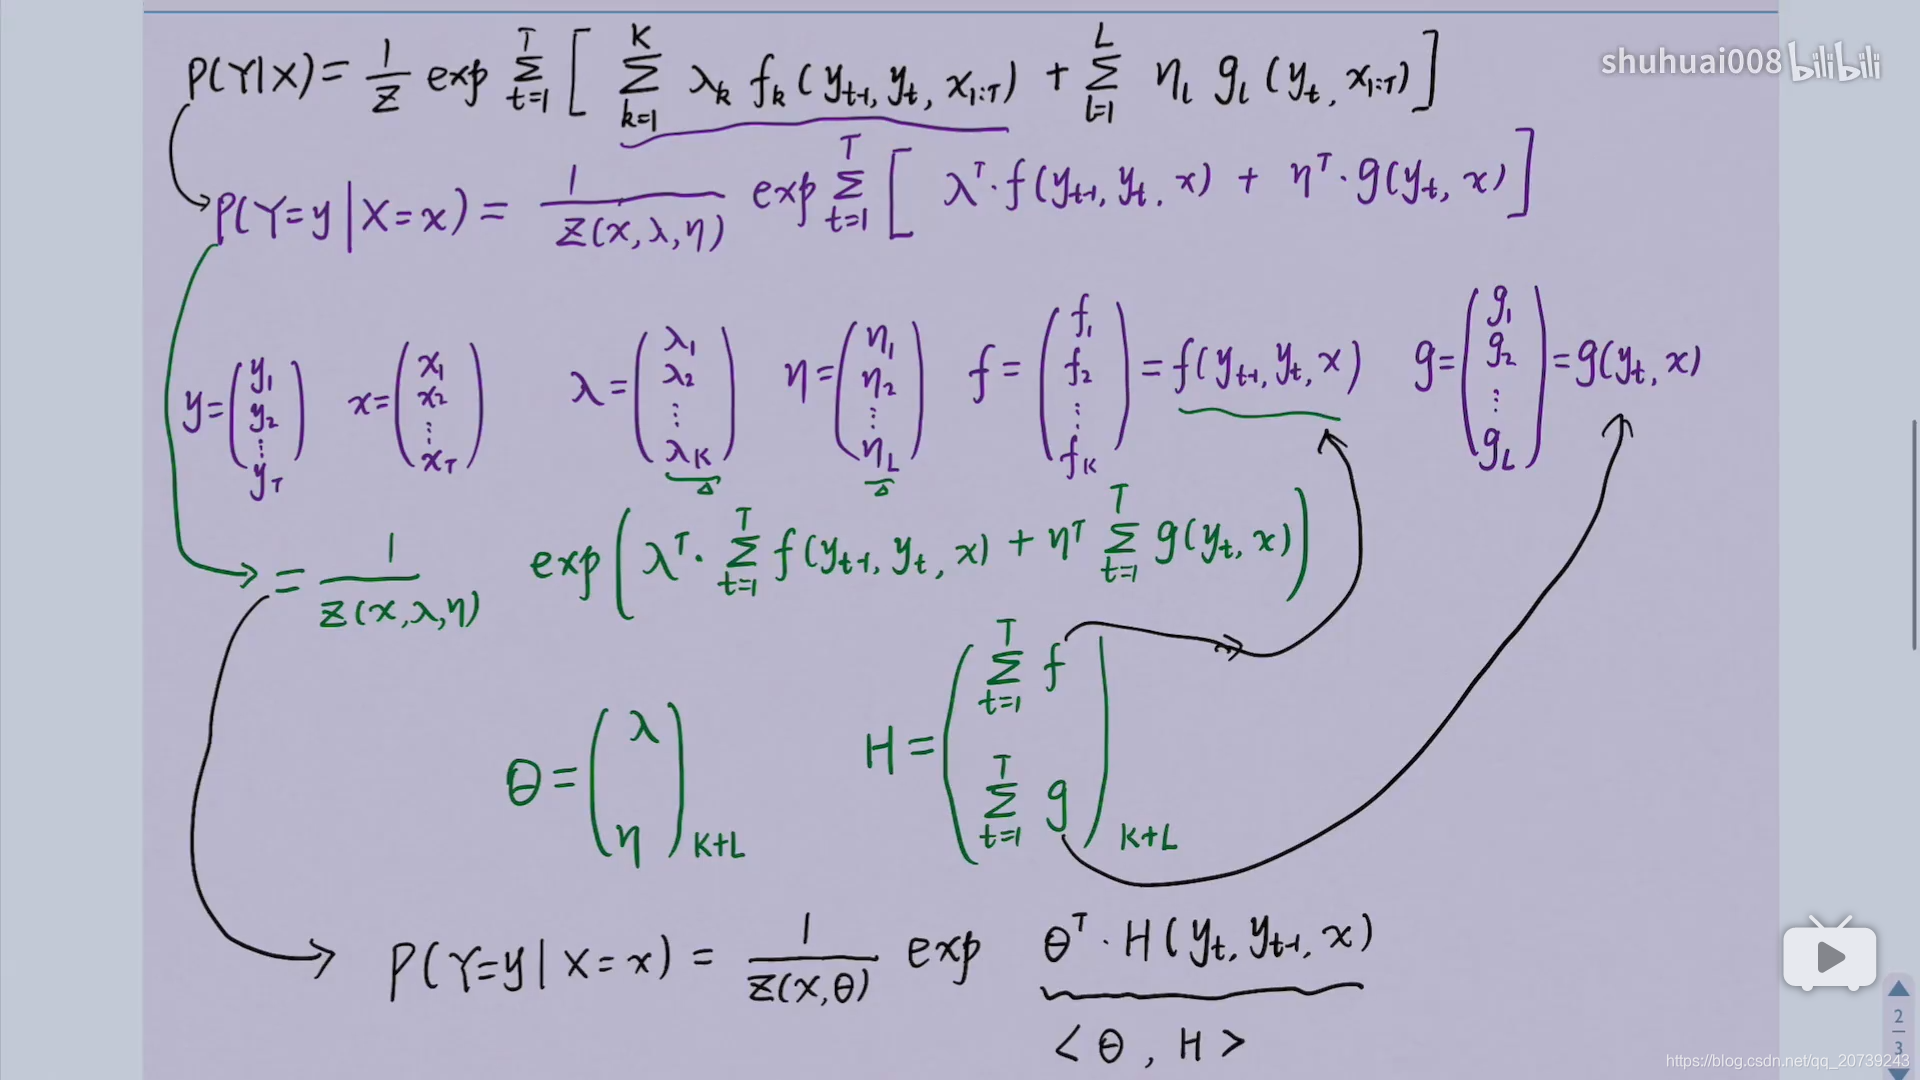 shuhuai008 bilibili
P(Y|X) = 1/Z exp Σ_{t=1}^{T} [ Σ_{k=1}^{K} λ_k f_k (y_{t-1}, y_t, x_{1:T}) + Σ_{l=1}^{L} η_l g_l (y_t, x_{1:T}) ]
P(Y=y | X=x) = 1/Z(x,λ,η) exp Σ_{t=1}^{T} [ λ^T · f(y_{t-1}, y_t, x) + η^T · g(y_t, x) ]
y = (y_1 y_2 ⋮ y_T) x = (x_1 x_2 ⋮ x_T) λ = (λ_1 λ_2 ⋮ λ_K) η = (η_1 η_2 ⋮ η_L) f = (f_1 f_2 ⋮ f_K) = f(y_{t-1}, y_t, x) g = (g_1 g_2 ⋮ g_L) = g(y_t, x)
= 1/Z(x,λ,η) exp( λ^T · Σ_{t=1}^{T} f(y_{t-1}, y_t, x) + η^T Σ_{t=1}^{T} g(y_t, x) )
θ = (λ η)_{K+L} H = (Σ_{t=1}^{T} f Σ_{t=1}^{T} g)_{K+L}
P(Y=y | X=x) = 1/Z(x,θ) exp θ^T · H(y_t, y_{t-1}, x)
< θ , H >
2
3
https://blog.csdn.net/qq_20739243